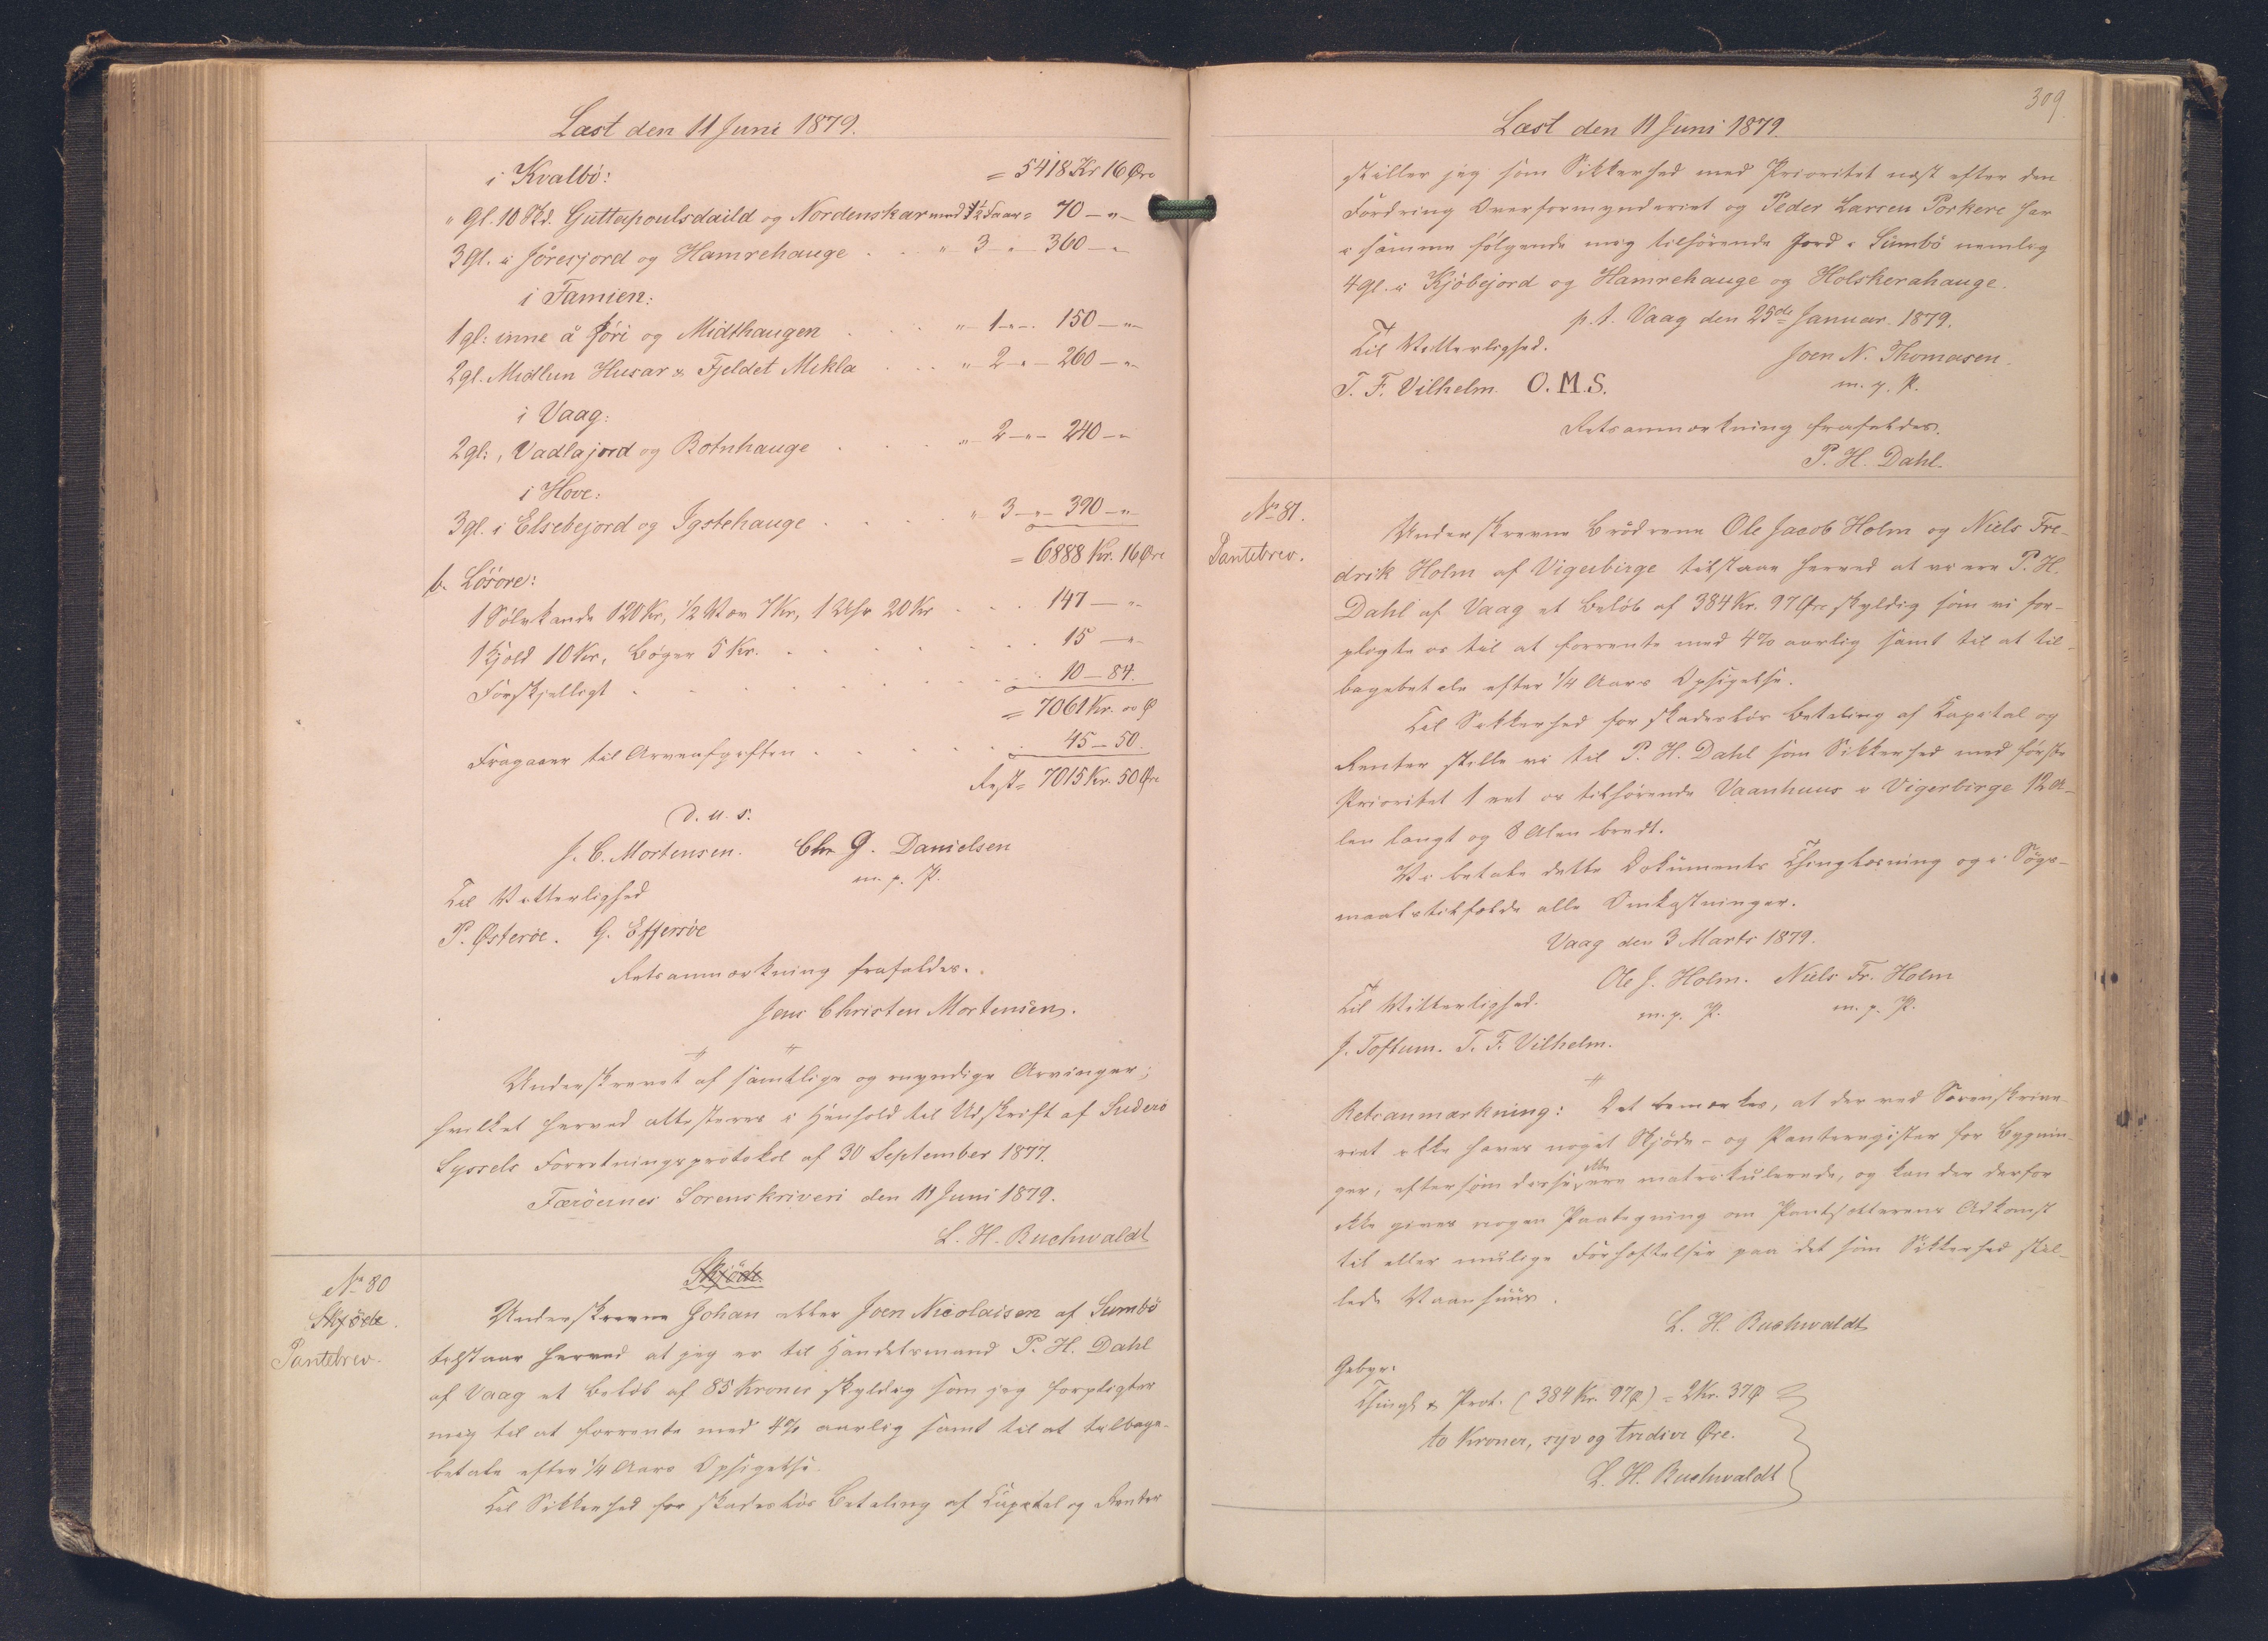 Læst den 11 Juni 1879.
i Kvalbö: = 5418 Kr 16 Øre
" Gl. 10 Skd. Guttapoulsdaild og Nordenskar med 1/2 Faar = 70 — " —
3 gl. i Jöresjord og Hamrehauge . . . " 3 — " — 360 — "
i Famien:
1 gl: inne å Jöri og Midthaugen . . . " — 1 — " — 150 — " —
2 gl. Midlun Husar & Fjeldet Mikla . . . " 2 — " — 260 — " —
i Vaag:
2 gl:, Vadlajord og Botnhauge . . . " — 2 — " — 240 — "
i Hove:
3 gl. i Elsebejord og Igstehauge . . . . " 3 — " — 390 — " —
= 6888 Kr. 16 Øre
b. Lösöre:
1 Sölvkande 120 Kr, 1/2 Vov 7 Kr, 1 Uhr 20 Kr . . . 147 — " —
1 Kjold 10 Kr, Bøger 5 Kr. . . . . . . . 15 — " —
Forskjelligt . . . . . . . . . 10 — 84.
= 7061 Kr. " Ø
Fragaaer til Arveafgiften . . . . . . 45 — 50.
Rest = 7015 Kr. 50 Øre
D. u. s.
J. C. Mortensen. Chr. G. Danielsen
m. p. P.
Til Vitterlighed
P. Østerøe. G. Effersøe
Retsanmærkning frafaldes.
Jens Christen Mortensen.
Underskrevet af samtlige og myndige Arvinger;
hvilket herved attesteres i Henhold til Udskrift af Suderö
Syssels Forretningsprotokol af 30 September 1877.
Færöernes Sorenskriveri den 11 Juni 1879.
L. H. Buchwaldt
No 80
Skjöde.
Pantebrev.
Skjöde.
Underskrevne Johan eller Joen Nicolaisen af Sumbö
tilstaar herved at jeg er til Handelsmand P. H. Dahl
af Vaag et Belöb af 85 Kroner skyldig som jeg forpligter
mig til at forrente med 4% aarlig samt til at tilbage-
betale efter 1/4 Aars Opsigelse.
Til Sikkerhed for skadeslös Betaling af Kapital og Renter
309
Læst den 11 Juni 1879.
stiller jeg som Sikkerhed med Prioritet næst efter den
Fordring Overformynderiet og Peder Larsen Porkere har
i samme følgende mig tilhörende Jord i Sumbö nemlig
4 gl. i Kjöbejord og Hamrehauge og Holskerahauge.
p. t. Vaag den 25de Januar 1879.
Til Vitterlighed.
Joen N. Thomasen.
T. F. Vilhelm. O.M.S. m. p. P.
Retsanmærkning frafaldes.
P. H. Dahl.
No 81.
Pantebrev.
Underskrevne Brödrene Ole Jacob Holm og Niels Fre-
drik Holm af Vigerbirge tilstaae herved at vi ere P. H.
Dahl af Vaag et Belöb af 384 Kr. 97 Øre skyldig som vi for-
pligte os til at forrente med 4% aarlig samt til at til-
bagebetale efter 1/4 Aars Opsigelse.
Til Sikkerhed for skadeslös Betaling af Kapital og
Renter stille vi til P. H. Dahl som Sikkerhed med förste
Prioritet 1 eet os tilhörende Vaanhuus i Vigerbirge 12 A-
len langt og 8 Alen bredt.
Vi betale dette Dokuments Thinglæsning og i Søgs-
maalstilfælde alle Omkostninger.
Vaag den 3 Marts 1879.
Ole J. Holm. Niels Fr. Holm
Til Vitterlighed. m. p. P. m. p. P.
J. Toftum. T. F. Vilhelm.
Retsanmærkning: Det bemærkes, at der ved Sorenskrive-
riet ikke haves noget Skjöde- og Panteregister for Bygnin-
ger, eftersom disse ikke ere matrikulerede, og kan der derfor
ikke gives nogen Paategning om Pantsætterens Adkomst
til eller mulige Forhæftelser paa det som Sikkerhed stil-
lede Vaanhuus.
L. H. Buchwaldt
Gebyr:
Thingl & Prot. (384 Kr. 97 Ø) = 2 Kr. 37 Ø
to Kroner, syv og tredive Øre.
L. H. Buchwaldt